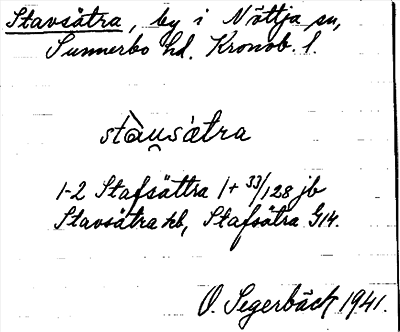 Stavsätra, by i Nöttja sn,
Sunnerbo hd. Kronob. l.
stàu̯sàtra
1-2 Stafsättra 1 + 33/128 jb
Stavsätra kb, Stafsätra G14.
O. Segerbäck 1941.